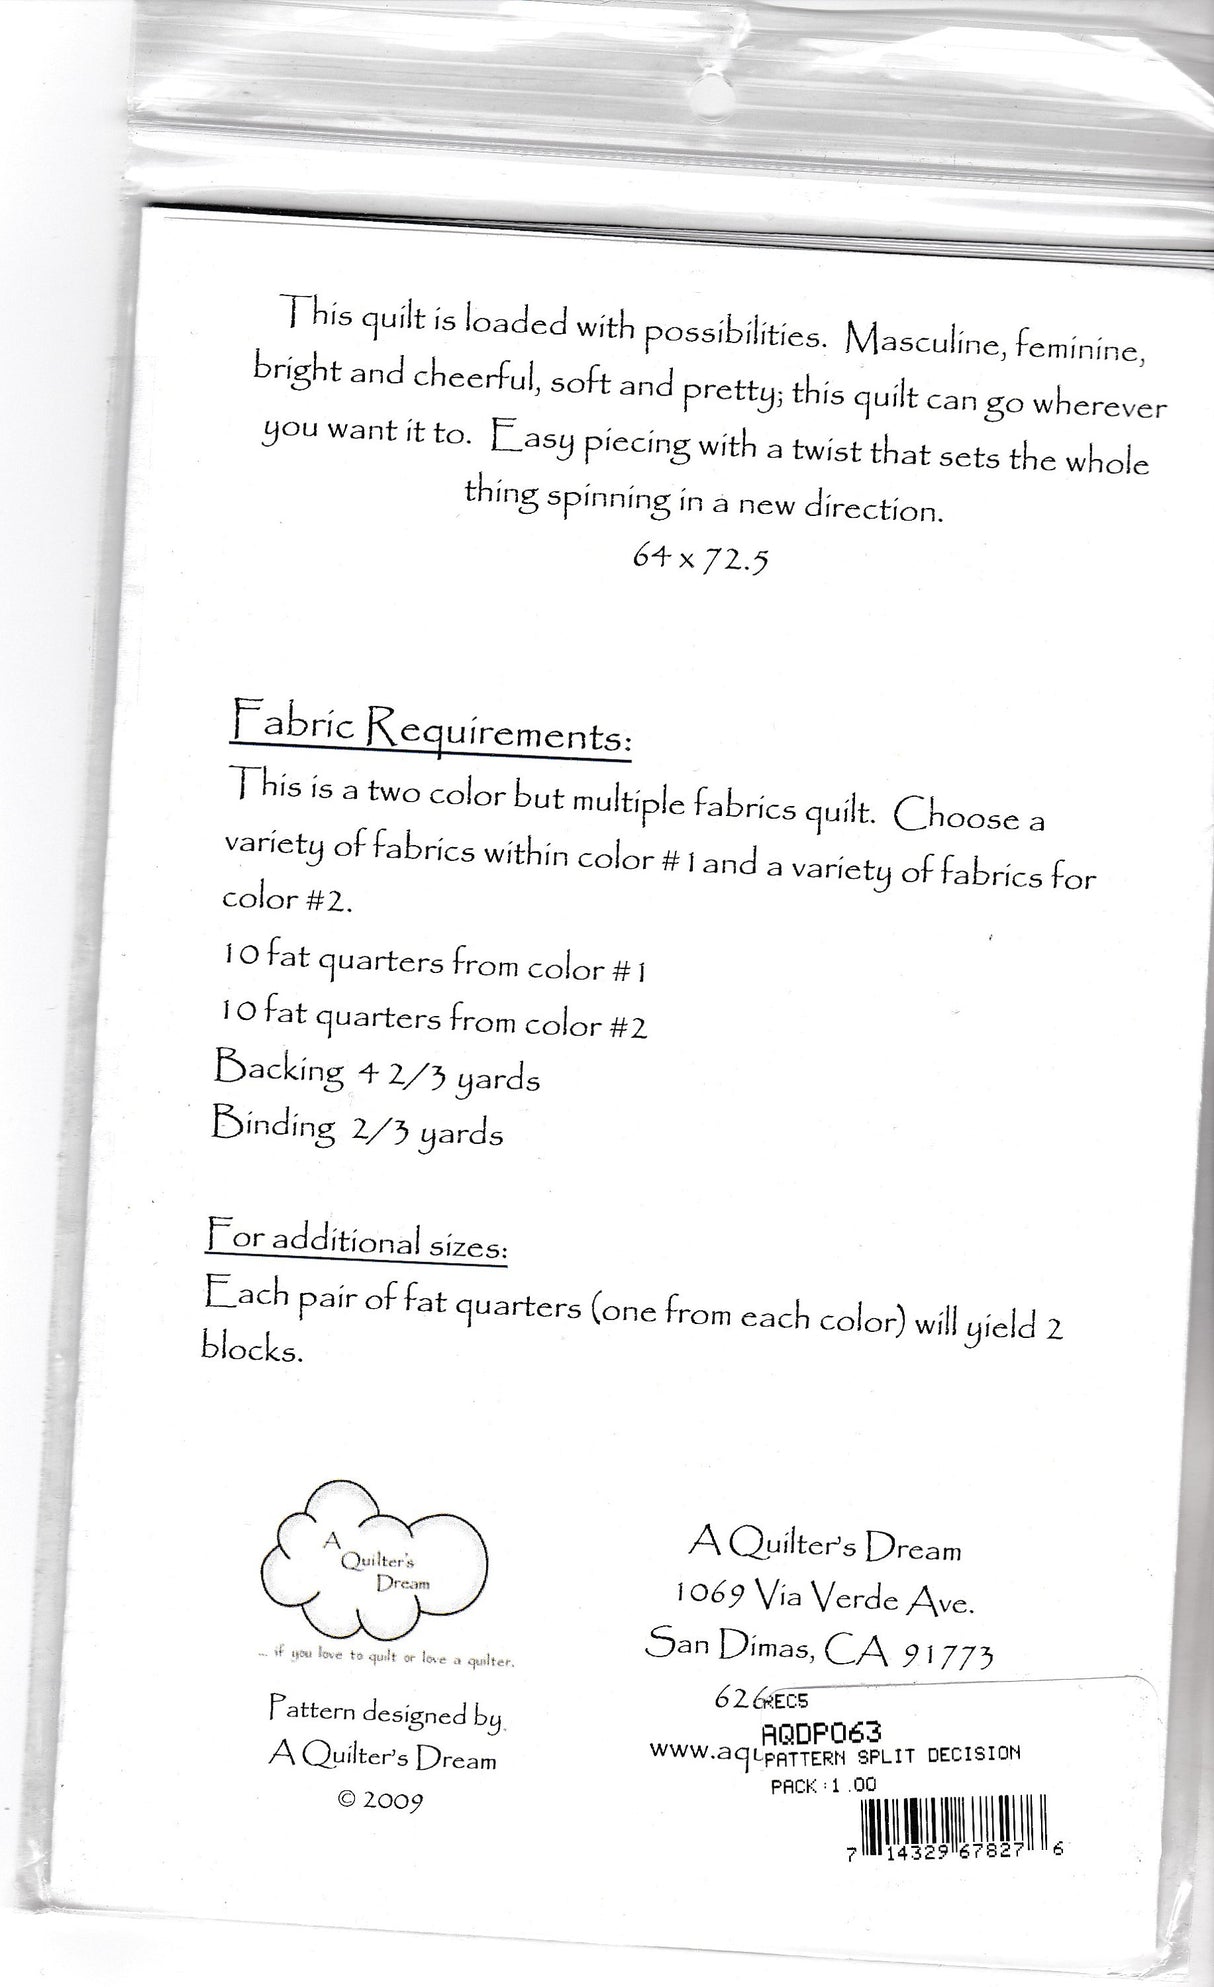 This quilt is loaded with possibilities. Masculine, feminine,
bright and cheerful, soft and pretty; this quilt can go wherever
you want it to. Easy piecing with a twist that sets the whole
thing spinning in a new direction.
64 x 72.5
Fabric Requirements:
This is a two color but multiple fabrics quilt. Choose a
variety of fabrics within color #1 and a variety of fabrics for
color #2.
10 fat quarters from color #1
10 fat quarters from color #2
Backing 4 2/3 yards
Binding 2/3 yards
For additional sizes:
Each pair of fat quarters (one from each color) will yield 2
blocks.
A
Quilter's
Dream
... if you love to quilt or love a quilter.
Pattern designed by
A Quilter's Dream
© 2009
A Quilter's Dream
1069 Via Verde Ave.
San Dimas, CA 91773
626
www.aq
REC5
AQDP063
PATTERN SPLIT DECISION
PACK :1 .00
7 14329 67827 6